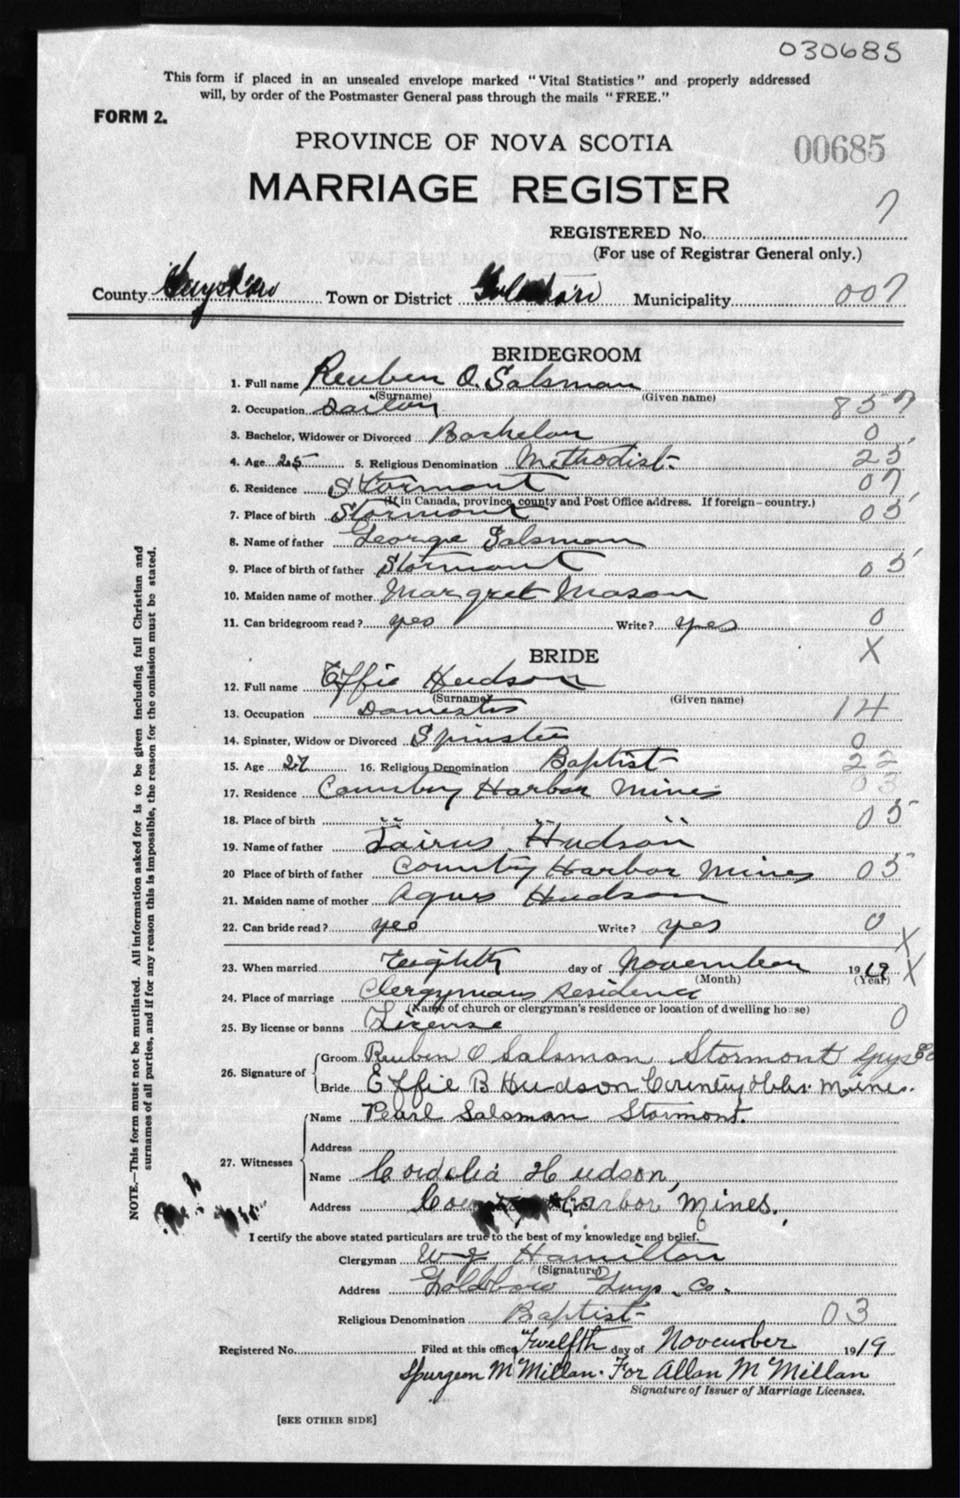 030685
This form if placed in an unsealed envelope marked "Vital Statistics" and properly addressed
will, by order of the Postmaster General pass through the mails "FREE."
FORM 2.
PROVINCE OF NOVA SCOTIA
00685
MARRIAGE REGISTER
7
REGISTERED No.
(For use of Registrar General only.)
County Guysboro Town or District Goldboro Municipality 007
BRIDEGROOM
1. Full name Reuben O. Salsman
(Surname) (Given name)
2. Occupation Sailor 857
3. Bachelor, Widower or Divorced Bachelor 0
4. Age 25 5. Religious Denomination Methodist 25
6. Residence Stormont 07
(If in Canada, province, county and Post Office address. If foreign—country.)
7. Place of birth Stormont 05
8. Name of father George Salsman
9. Place of birth of father Stormont 05
10. Maiden name of mother Margret Mason
11. Can bridegroom read? yes Write? yes 0
X
BRIDE
12. Full name Effie Hudson
(Surname) (Given name)
13. Occupation Domestic 14
14. Spinster, Widow or Divorced Spinster 0
15. Age 27 16. Religious Denomination Baptist 22
17. Residence Country Harbor Mines 03
18. Place of birth " " " 05
19. Name of father Jairus Hudson
20 Place of birth of father Country Harbor Mines 05
21. Maiden name of mother Agnes Hudson
22. Can bride read? yes Write? yes 0
X
23. When married Eighth day of November 1919 X
(Month) (Year)
24. Place of marriage Clergymans Residence
(Name of church or clergyman's residence or location of dwelling house)
25. By license or banns License 0
26. Signature of Groom Reuben O Salsman Stormont Guys Co
Bride Effie B Hudson Country Hbr. Mines.
27. Witnesses Name Pearl Salsman Stormont.
Address
Name Cordelia Hudson,
Address Harbor Mines.
I certify the above stated particulars are true to the best of my knowledge and belief.
Clergyman Hamilton
(Signature)
Address Goldboro Guys. Co.
Religious Denomination Baptist 03
Registered No. Filed at this office Twelfth day of November 1919
Spurgeon McMillan. For Allan McMillan
Signature of Issuer of Marriage Licenses.
[SEE OTHER SIDE]
NOTE.—This form must not be mutilated. All information asked for is to be given including full Christian and
surnames of all parties, and if for any reason this is impossible, the reason for the omission must be stated.